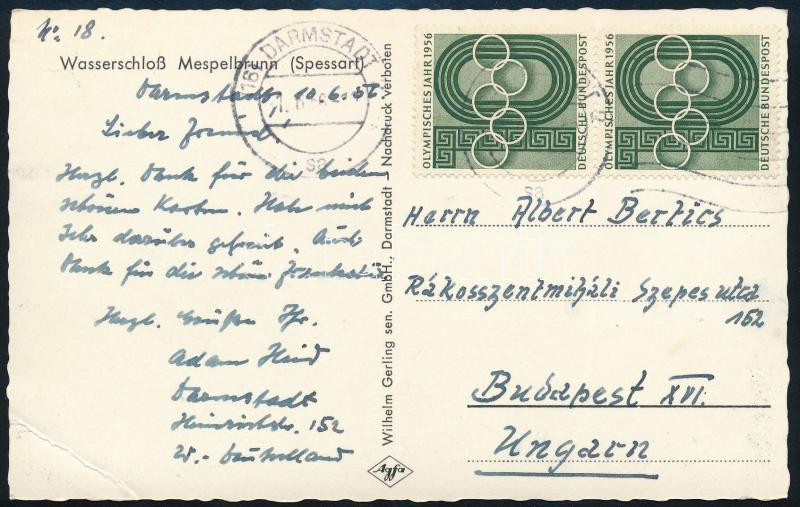 No. 18.
Wasserschloß Mespelbrunn (Spessart)
Darmstadt 10.6.56
Lieber Freund!
Herzl. Dank für die beiden
schönen Karten. Habe mich
sehr darüber gefreut. Auch
Dank für die schöne
Herzl. Grüße Ihr.
Adam
Darmstadt
Heinrichstr. 152
W.-Deutschland
Wilhelm Gerling sen. GmbH., Darmstadt – Nachdruck verboten
Agfa
DARMSTADT
OLYMPISCHES JAHR 1956
DEUTSCHE BUNDESPOST
OLYMPISCHES JAHR 1956
DEUTSCHE BUNDESPOST
Herrn Albert Bertics
Rákosszentmiháli Szepes utca
162
Budapest XVI.
Ungarn